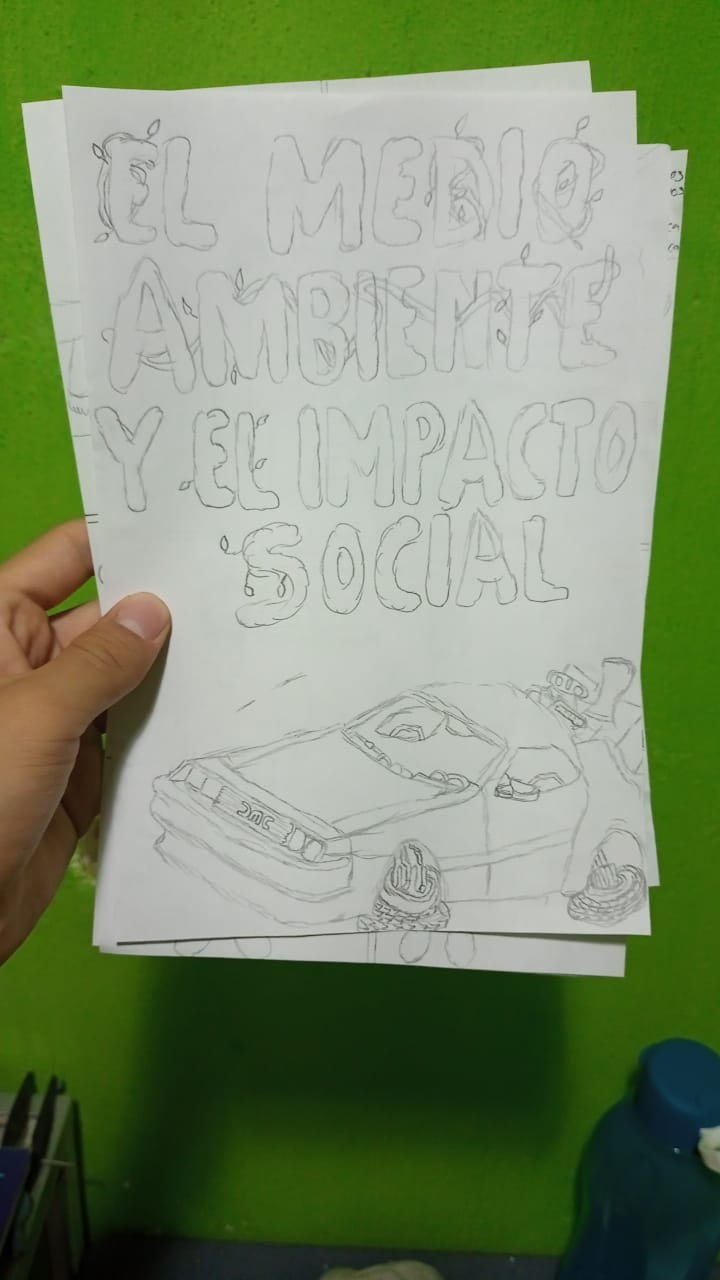 EL MEDIO
AMBIENTE
Y EL IMPACTO
SOCIAL
DMC